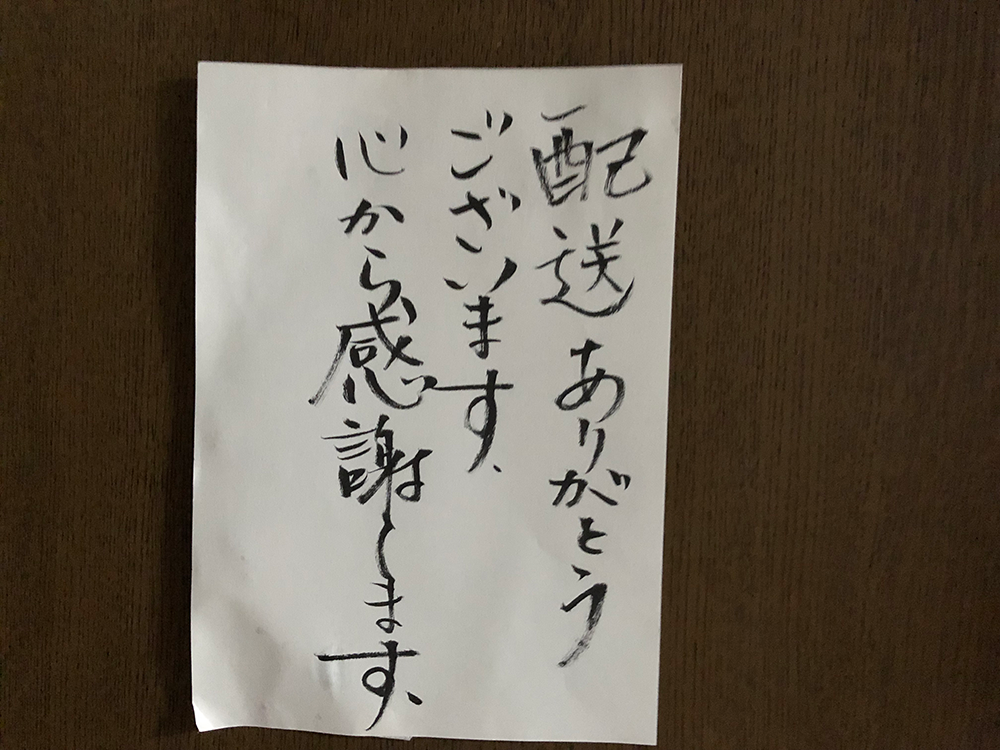 配送ありがとう
ございます、
心から感謝します、